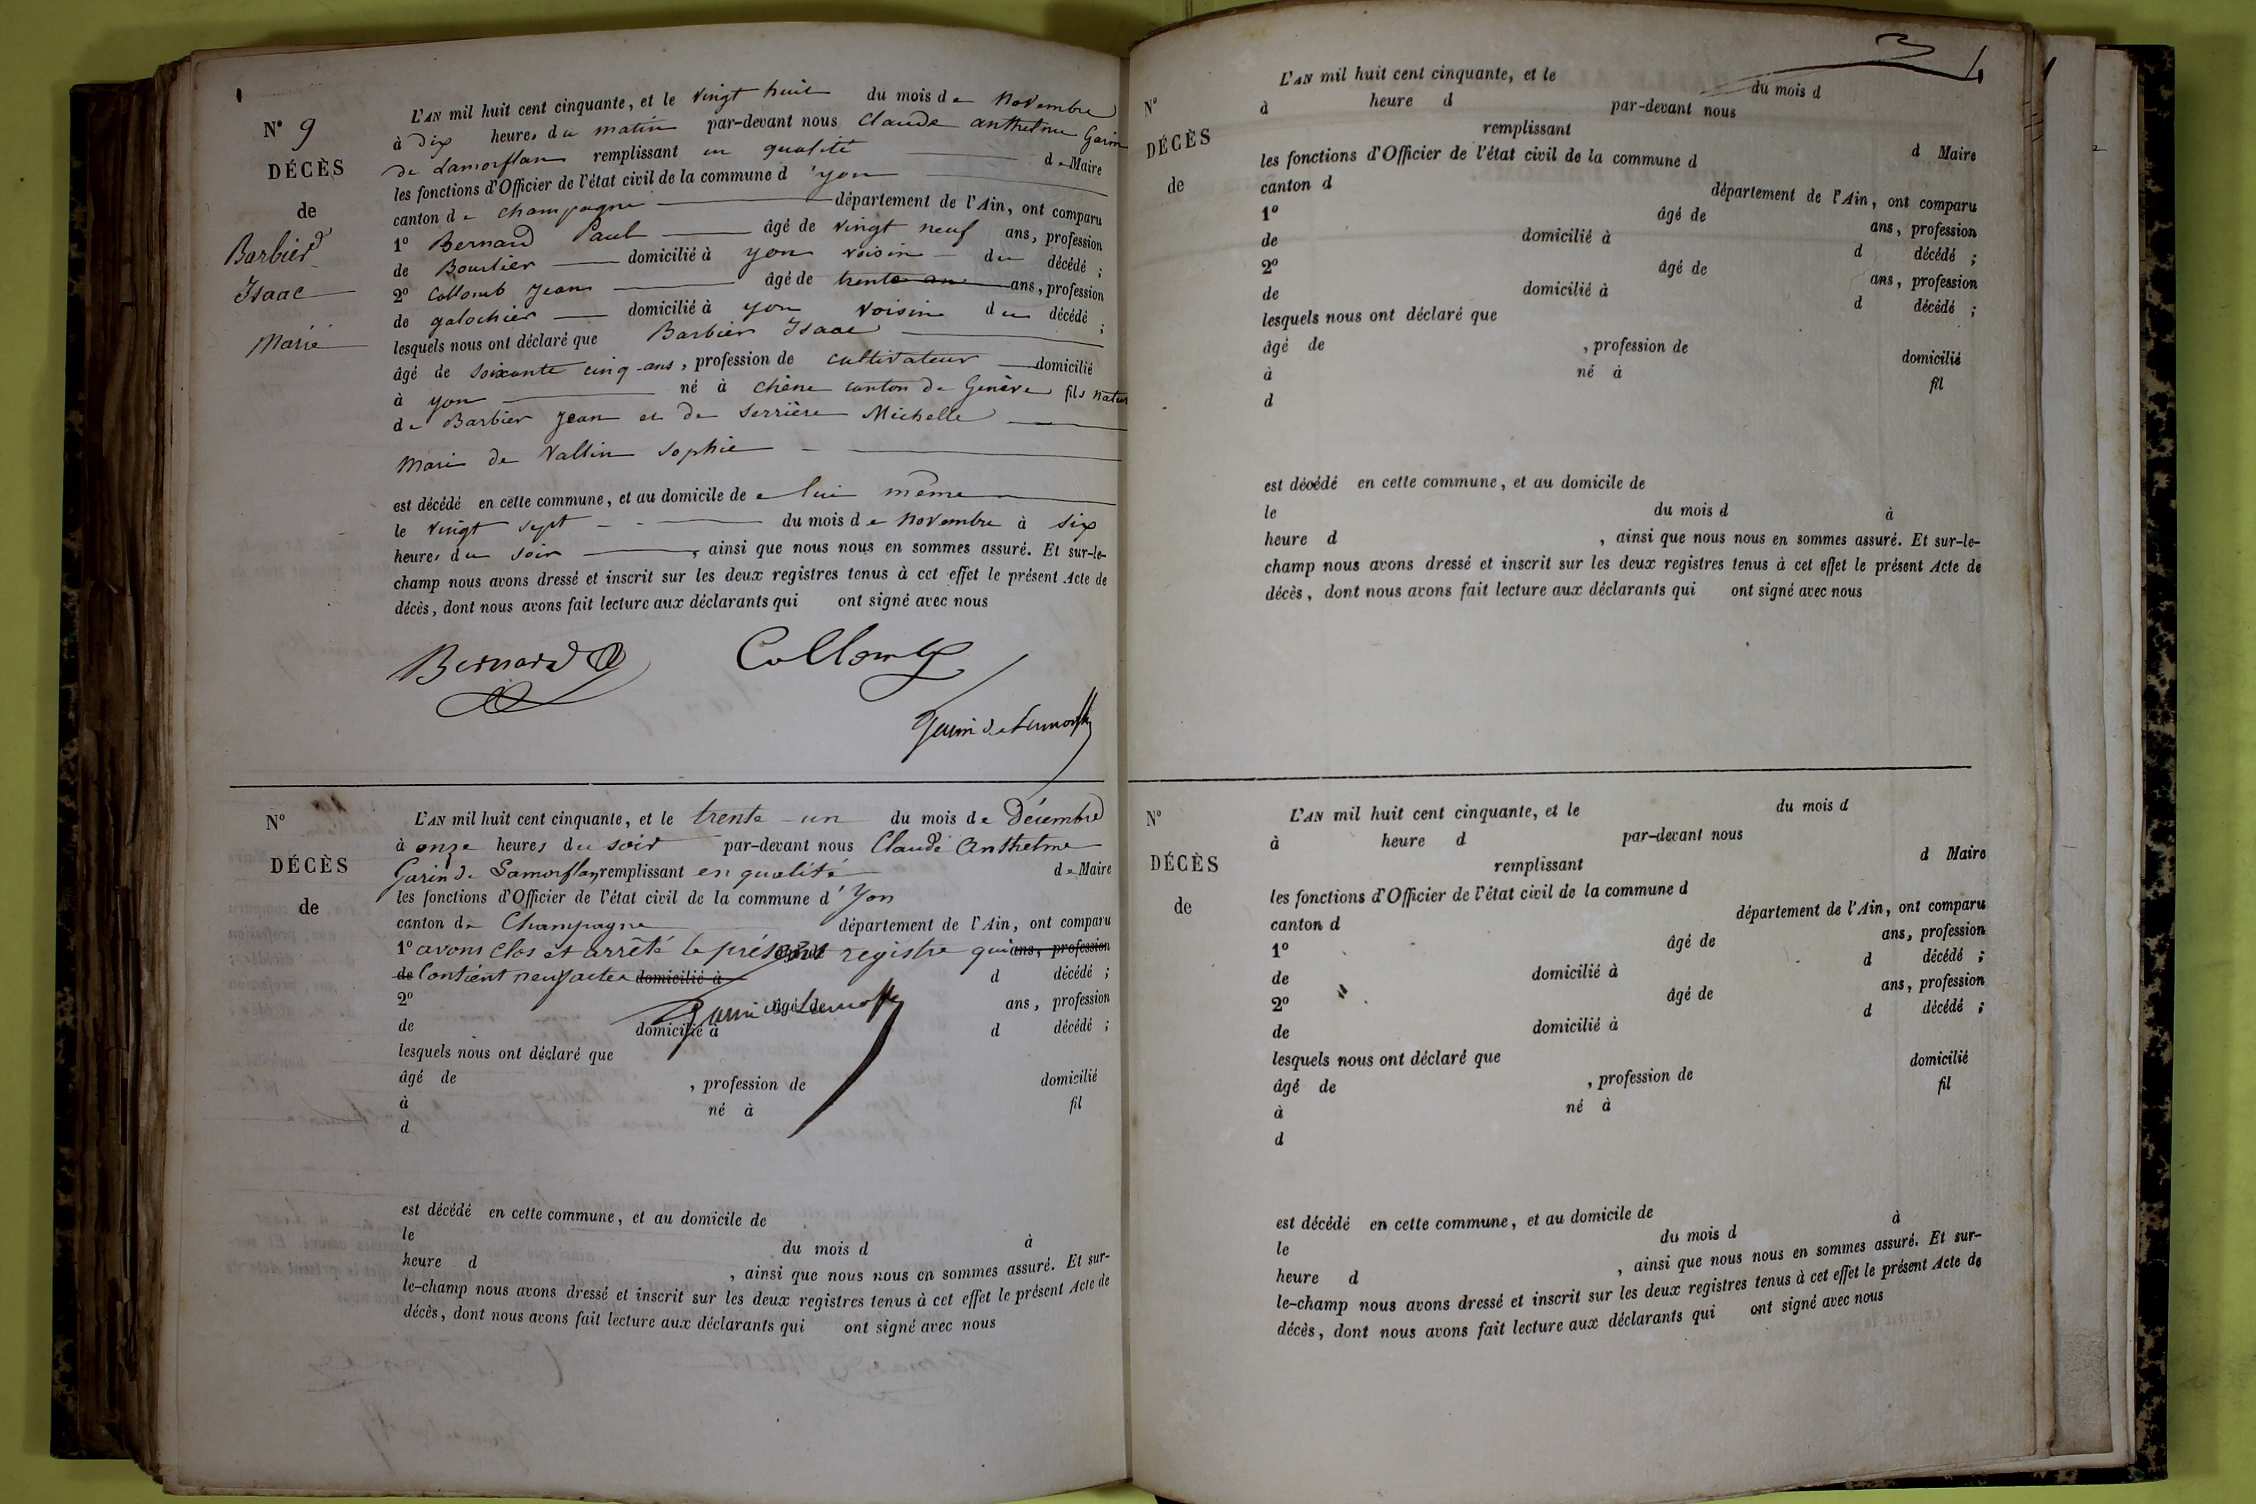 N° 9
DÉCÈS
de
Barbier
Isaac
Marié
L'AN mil huit cent cinquante, et le vingt huit du mois de Novembre
à dix heures du matin par-devant nous Claude anthelme Garin
de Lamorflan remplissant en qualité de Maire
les fonctions d'Officier de l'état civil de la commune d'yon
canton de Champagne département de l'Ain, ont comparu
1° Bernard Paul âgé de vingt neuf ans, profession
de Bourlier domicilié à yon voisin du décédé ;
2° Collomb Jean âgé de trente un ans, profession
de galochier domicilié à yon voisin du décédé ;
lesquels nous ont déclaré que Barbier Isaac
âgé de soixante cinq ans, profession de cultivateur domicilié
à yon né à chêne canton de Genève fils natur
de Barbier Jean et de Serrière Michelle
Mari de Vallin Sophie
est décédé en cette commune, et au domicile de lui même
le vingt sept du mois de Novembre à six
heures du soir , ainsi que nous nous en sommes assuré. Et sur-le-
champ nous avons dressé et inscrit sur les deux registres tenus à cet effet le présent Acte de
décès, dont nous avons fait lecture aux déclarants qui ont signé avec nous
Bernard Collomb
Garin de Lamorflan
N°
DÉCÈS
de
L'AN mil huit cent cinquante, et le trente-un du mois de Décembre
à onze heures du soir par-devant nous Claude Anthelme
Garin de Lamorflan remplissant en qualité de Maire
les fonctions d'Officier de l'état civil de la commune d'Yon
canton de Champagne département de l'Ain, ont comparu
1° avons clos et arrêté le présent registre qui ans, profession
de contient neuf actes domicilié à d décédé ;
2° âgé de ans, profession
Garin de Lamorflan
de domicilié à d décédé ;
lesquels nous ont déclaré que
âgé de , profession de domicilié
à né à fil
d
est décédé en cette commune, et au domicile de
le du mois d à
heure d , ainsi que nous nous en sommes assuré. Et sur-
le-champ nous avons dressé et inscrit sur les deux registres tenus à cet effet le présent Acte de
décès, dont nous avons fait lecture aux déclarants qui ont signé avec nous
N°
DÉCÈS
de
L'AN mil huit cent cinquante, et le du mois d
à heure d par-devant nous
remplissant d Maire
les fonctions d'Officier de l'état civil de la commune d
canton d département de l'Ain, ont comparu
1° âgé de ans, profession
de domicilié à d décédé ;
2° âgé de ans, profession
de domicilié à d décédé ;
lesquels nous ont déclaré que
âgé de , profession de domicilié
à né à fil
d
est décédé en cette commune, et au domicile de
le du mois d à
heure d , ainsi que nous nous en sommes assuré. Et sur-le-
champ nous avons dressé et inscrit sur les deux registres tenus à cet effet le présent Acte de
décès, dont nous avons fait lecture aux déclarants qui ont signé avec nous
N°
DÉCÈS
de
L'AN mil huit cent cinquante, et le du mois d
à heure d par-devant nous
remplissant d Maire
les fonctions d'Officier de l'état civil de la commune d
canton d département de l'Ain, ont comparu
1° âgé de ans, profession
de domicilié à d décédé ;
2° âgé de ans, profession
de domicilié à d décédé ;
lesquels nous ont déclaré que
âgé de , profession de domicilié
à né à fil
d
est décédé en cette commune, et au domicile de
le du mois d à
heure d , ainsi que nous nous en sommes assuré. Et sur-
le-champ nous avons dressé et inscrit sur les deux registres tenus à cet effet le présent Acte de
décès, dont nous avons fait lecture aux déclarants qui ont signé avec nous